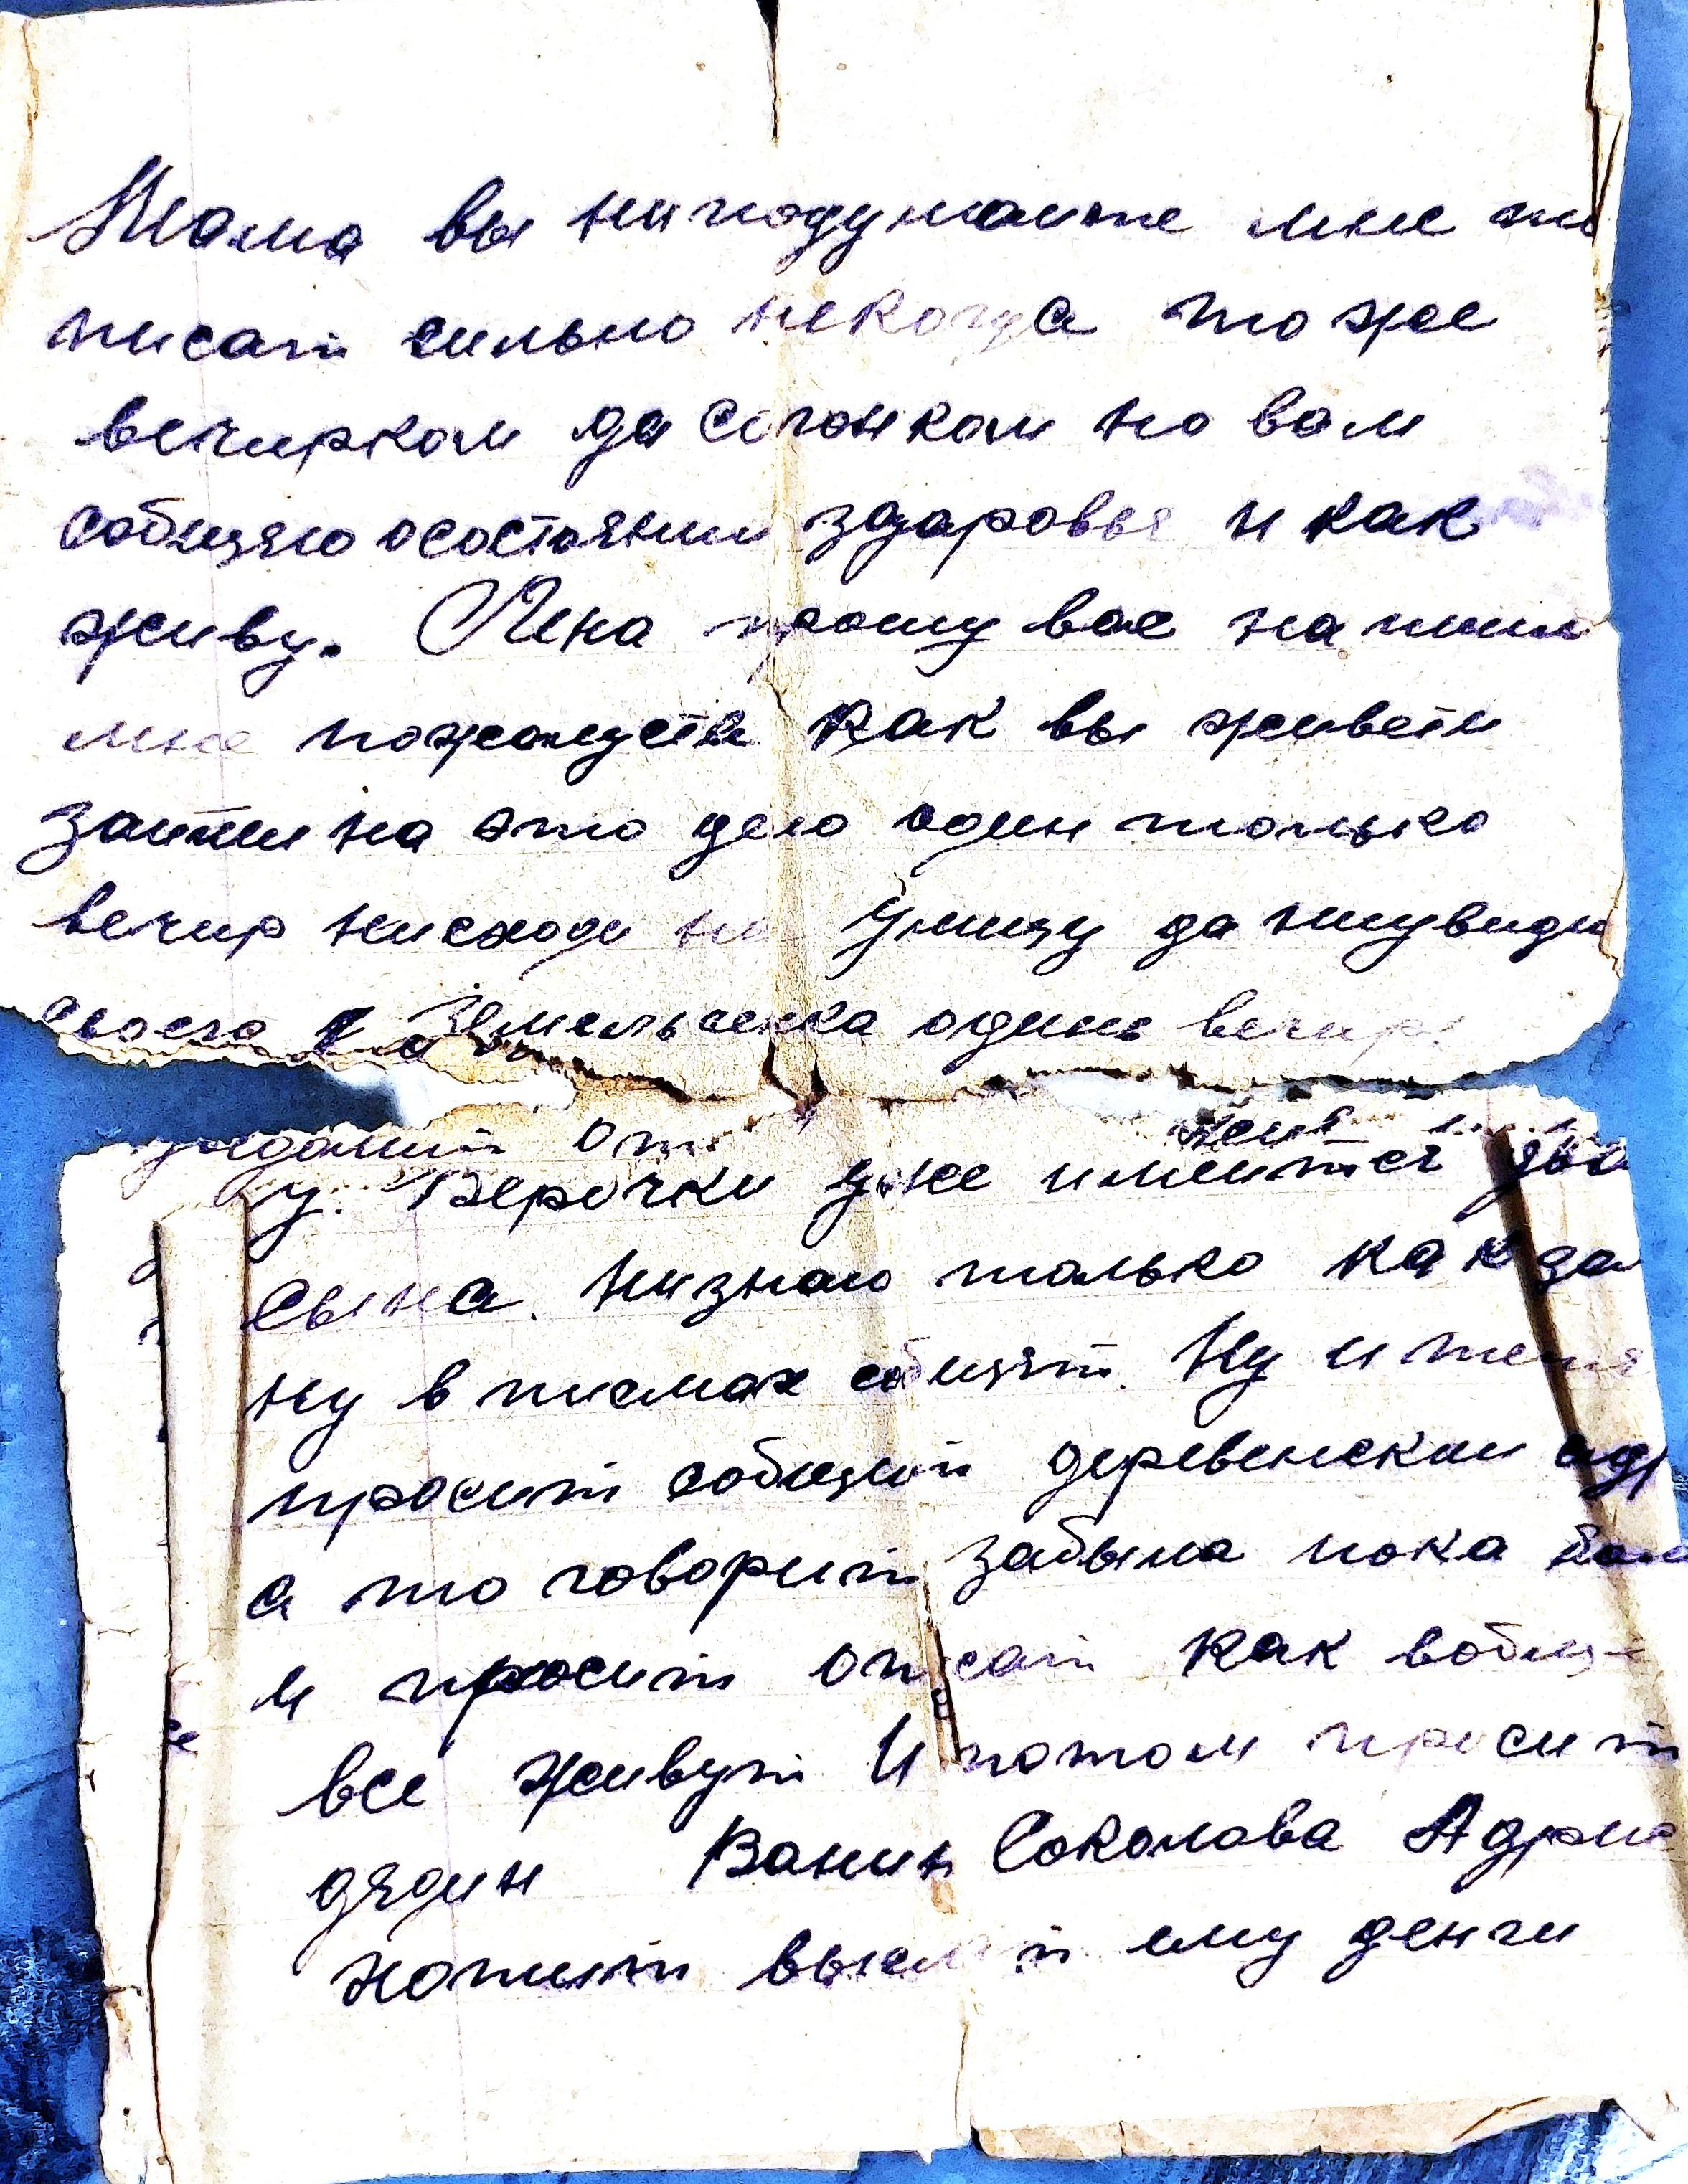 Мама вы ниподумаите мне то
писат сильно некогда тоже
вечирком да согонком но вам
собщяю осостоянии здаровье и как
живу. Лена прошу вас напиши
мне пожалуств как вы живети
заими на это дело один только
вечир нисходи на улицу да ниувиди
своего Емельченка один вечир
от
у. Верочки уже имеится два
сына. низнаю только как да
ну в писмах собщят. Ну и меня
просит собщит деревенскии адр
а то говорит забыла пока бол
и просит описат как вобще
все живут И потом просит
дядин Ванин Соколова Адрис
хотит выслат ему денги